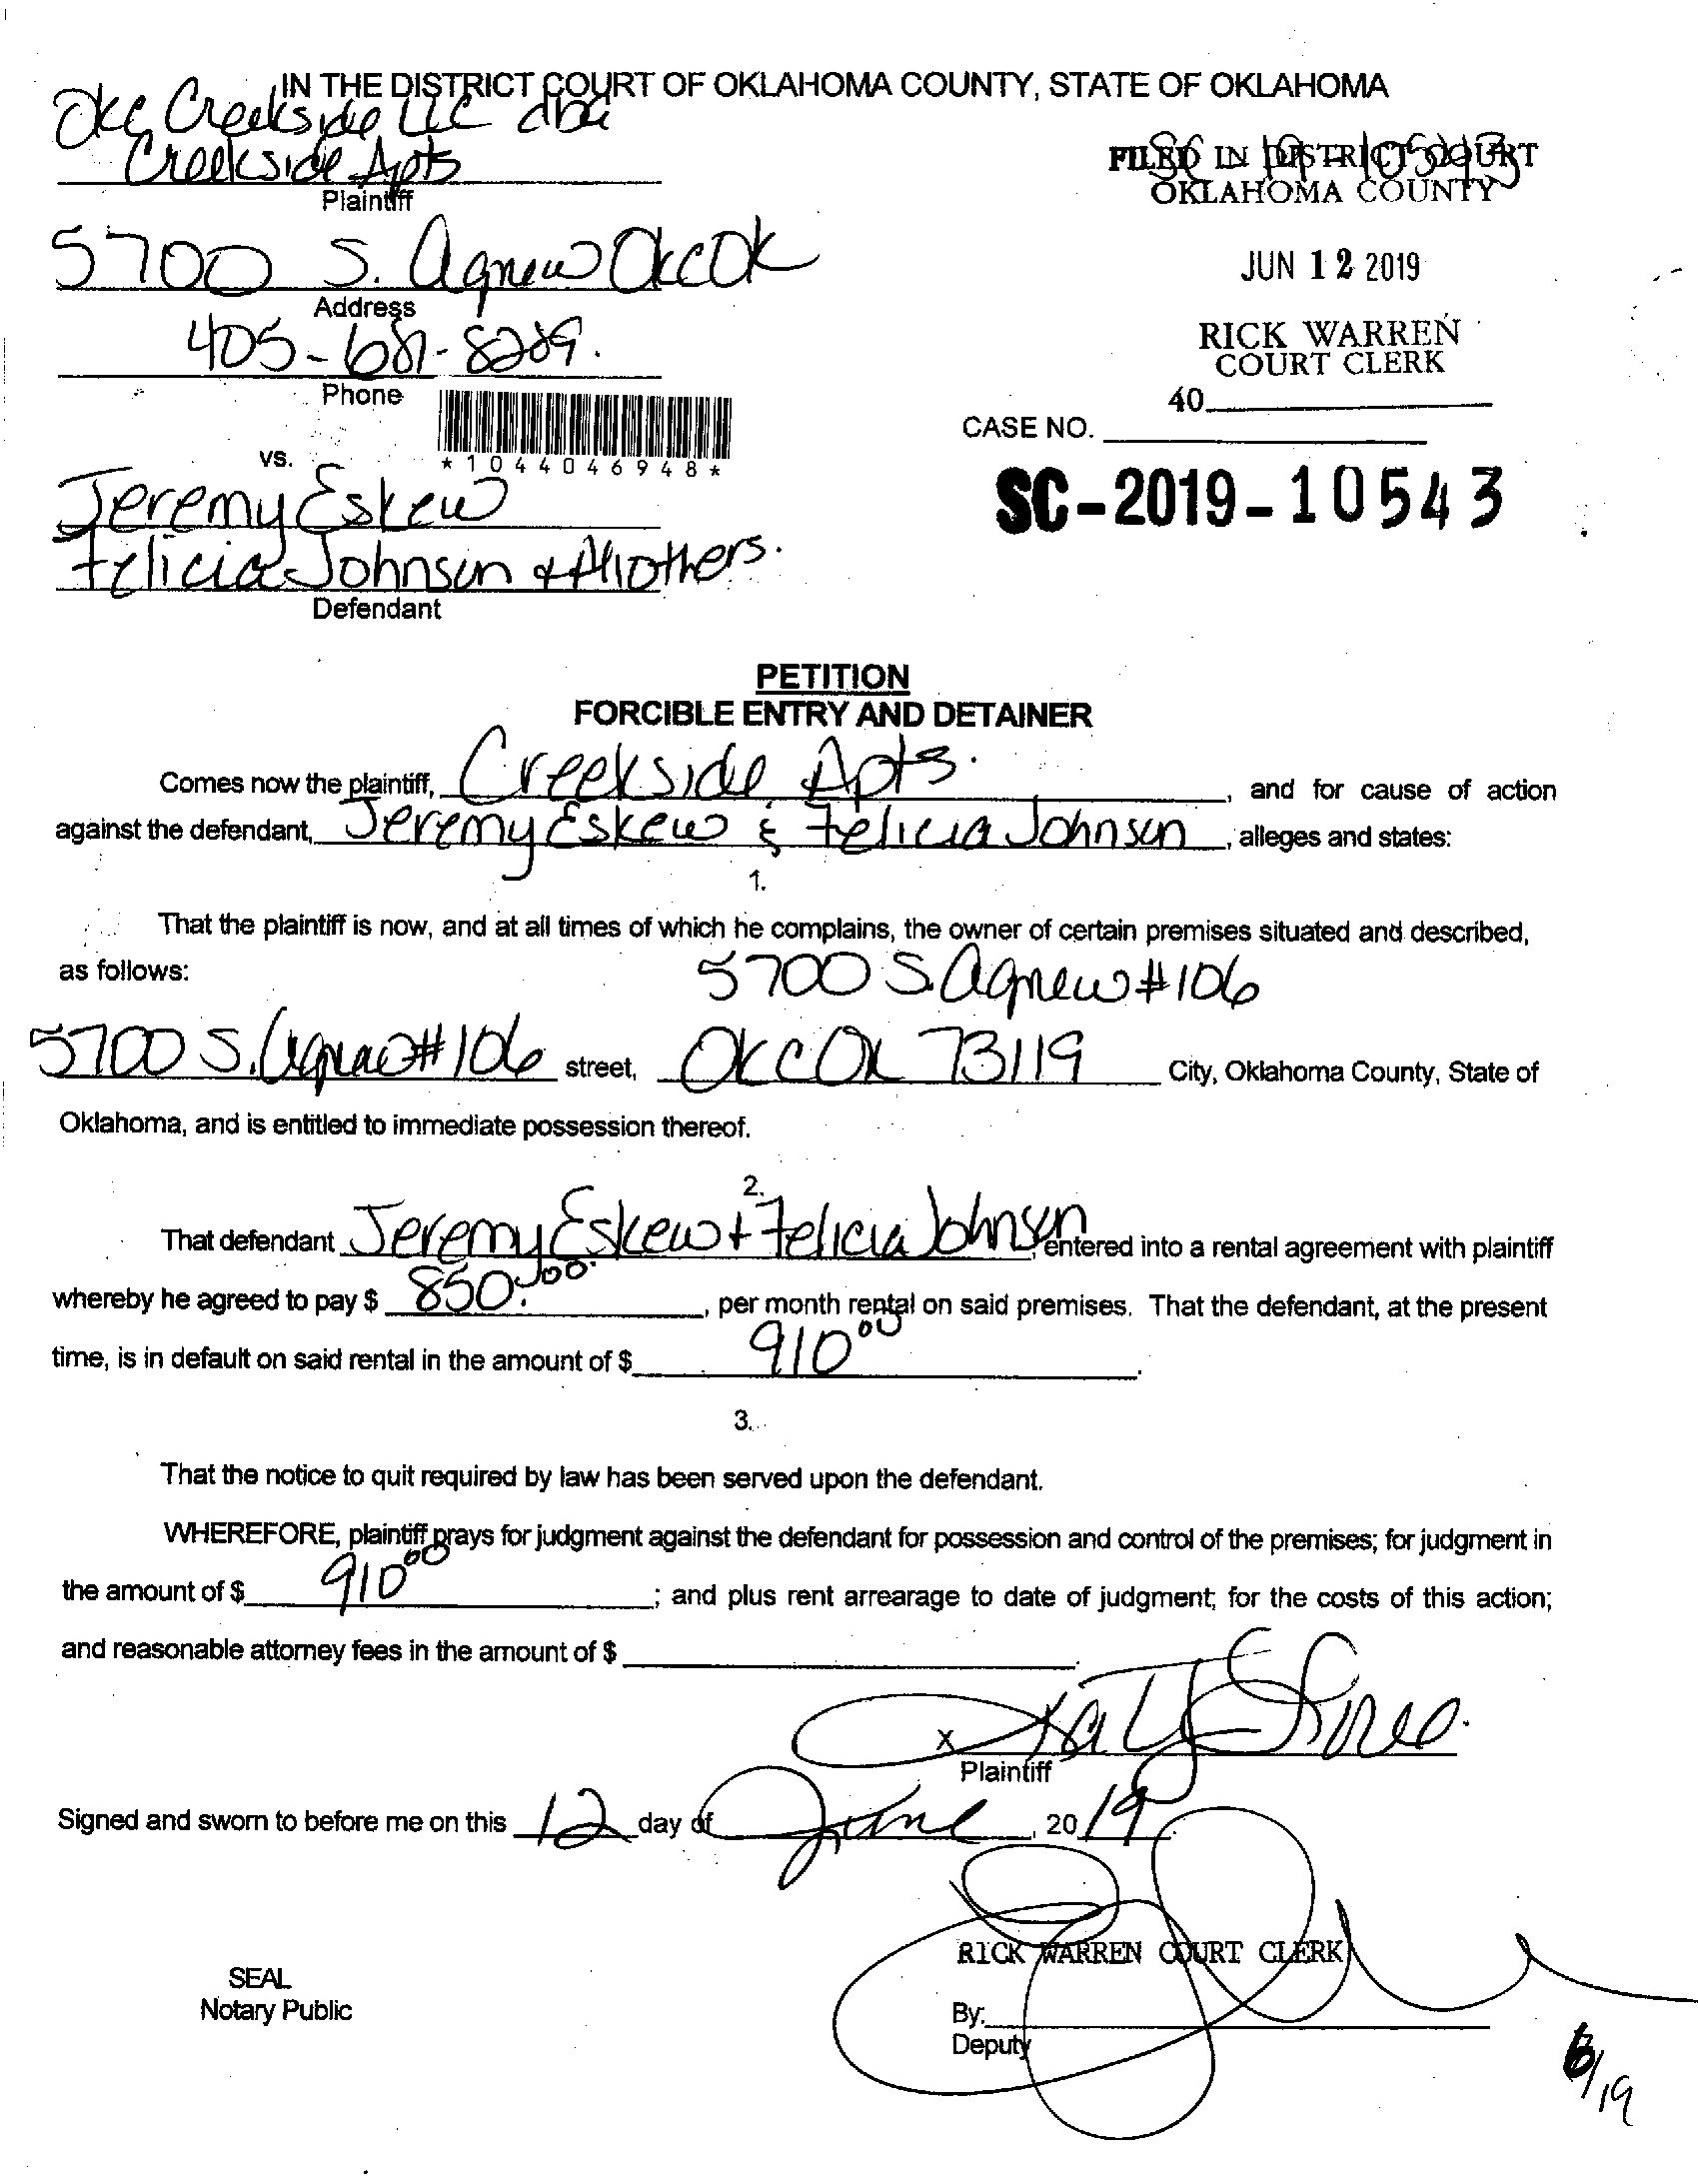 IN THE DISTRICT COURT OF OKLAHOMA COUNTY, STATE OF OKLAHOMA
Okc Creekside LLC dba
Creekside Apts
Plaintiff
SC 19-10543
FILED IN DISTRICT COURT
OKLAHOMA COUNTY
5700 S. Agnew OKC OK
Address
JUN 12 2019
405-681-8289.
Phone
RICK WARREN
COURT CLERK
40
CASE NO.
vs.
*1044046948*
SC-2019-10543
Jeremy Eskew
Felicia Johnson & All others.
Defendant
PETITION
FORCIBLE ENTRY AND DETAINER
Comes now the plaintiff, Creekside Apts. , and for cause of action
against the defendant, Jeremy Eskew & Felicia Johnson , alleges and states:
1.
That the plaintiff is now, and at all times of which he complains, the owner of certain premises situated and described,
as follows: 5700 S. Agnew #106
5700 S. Agnew #106 street, OKC OK 73119 City, Oklahoma County, State of
Oklahoma, and is entitled to immediate possession thereof.
2.
That defendant Jeremy Eskew + Felicia Johnson, entered into a rental agreement with plaintiff
whereby he agreed to pay $ 850.00 , per month rental on said premises. That the defendant, at the present
time, is in default on said rental in the amount of $ 910 00 .
3.
That the notice to quit required by law has been served upon the defendant.
WHEREFORE, plaintiff prays for judgment against the defendant for possession and control of the premises; for judgment in
the amount of $ 910 00 ; and plus rent arrearage to date of judgment; for the costs of this action;
and reasonable attorney fees in the amount of $ .
X
Plaintiff
Signed and sworn to before me on this 12 day of June , 20 19.
RICK WARREN COURT CLERK
SEAL
Notary Public
By:
Deputy
/19